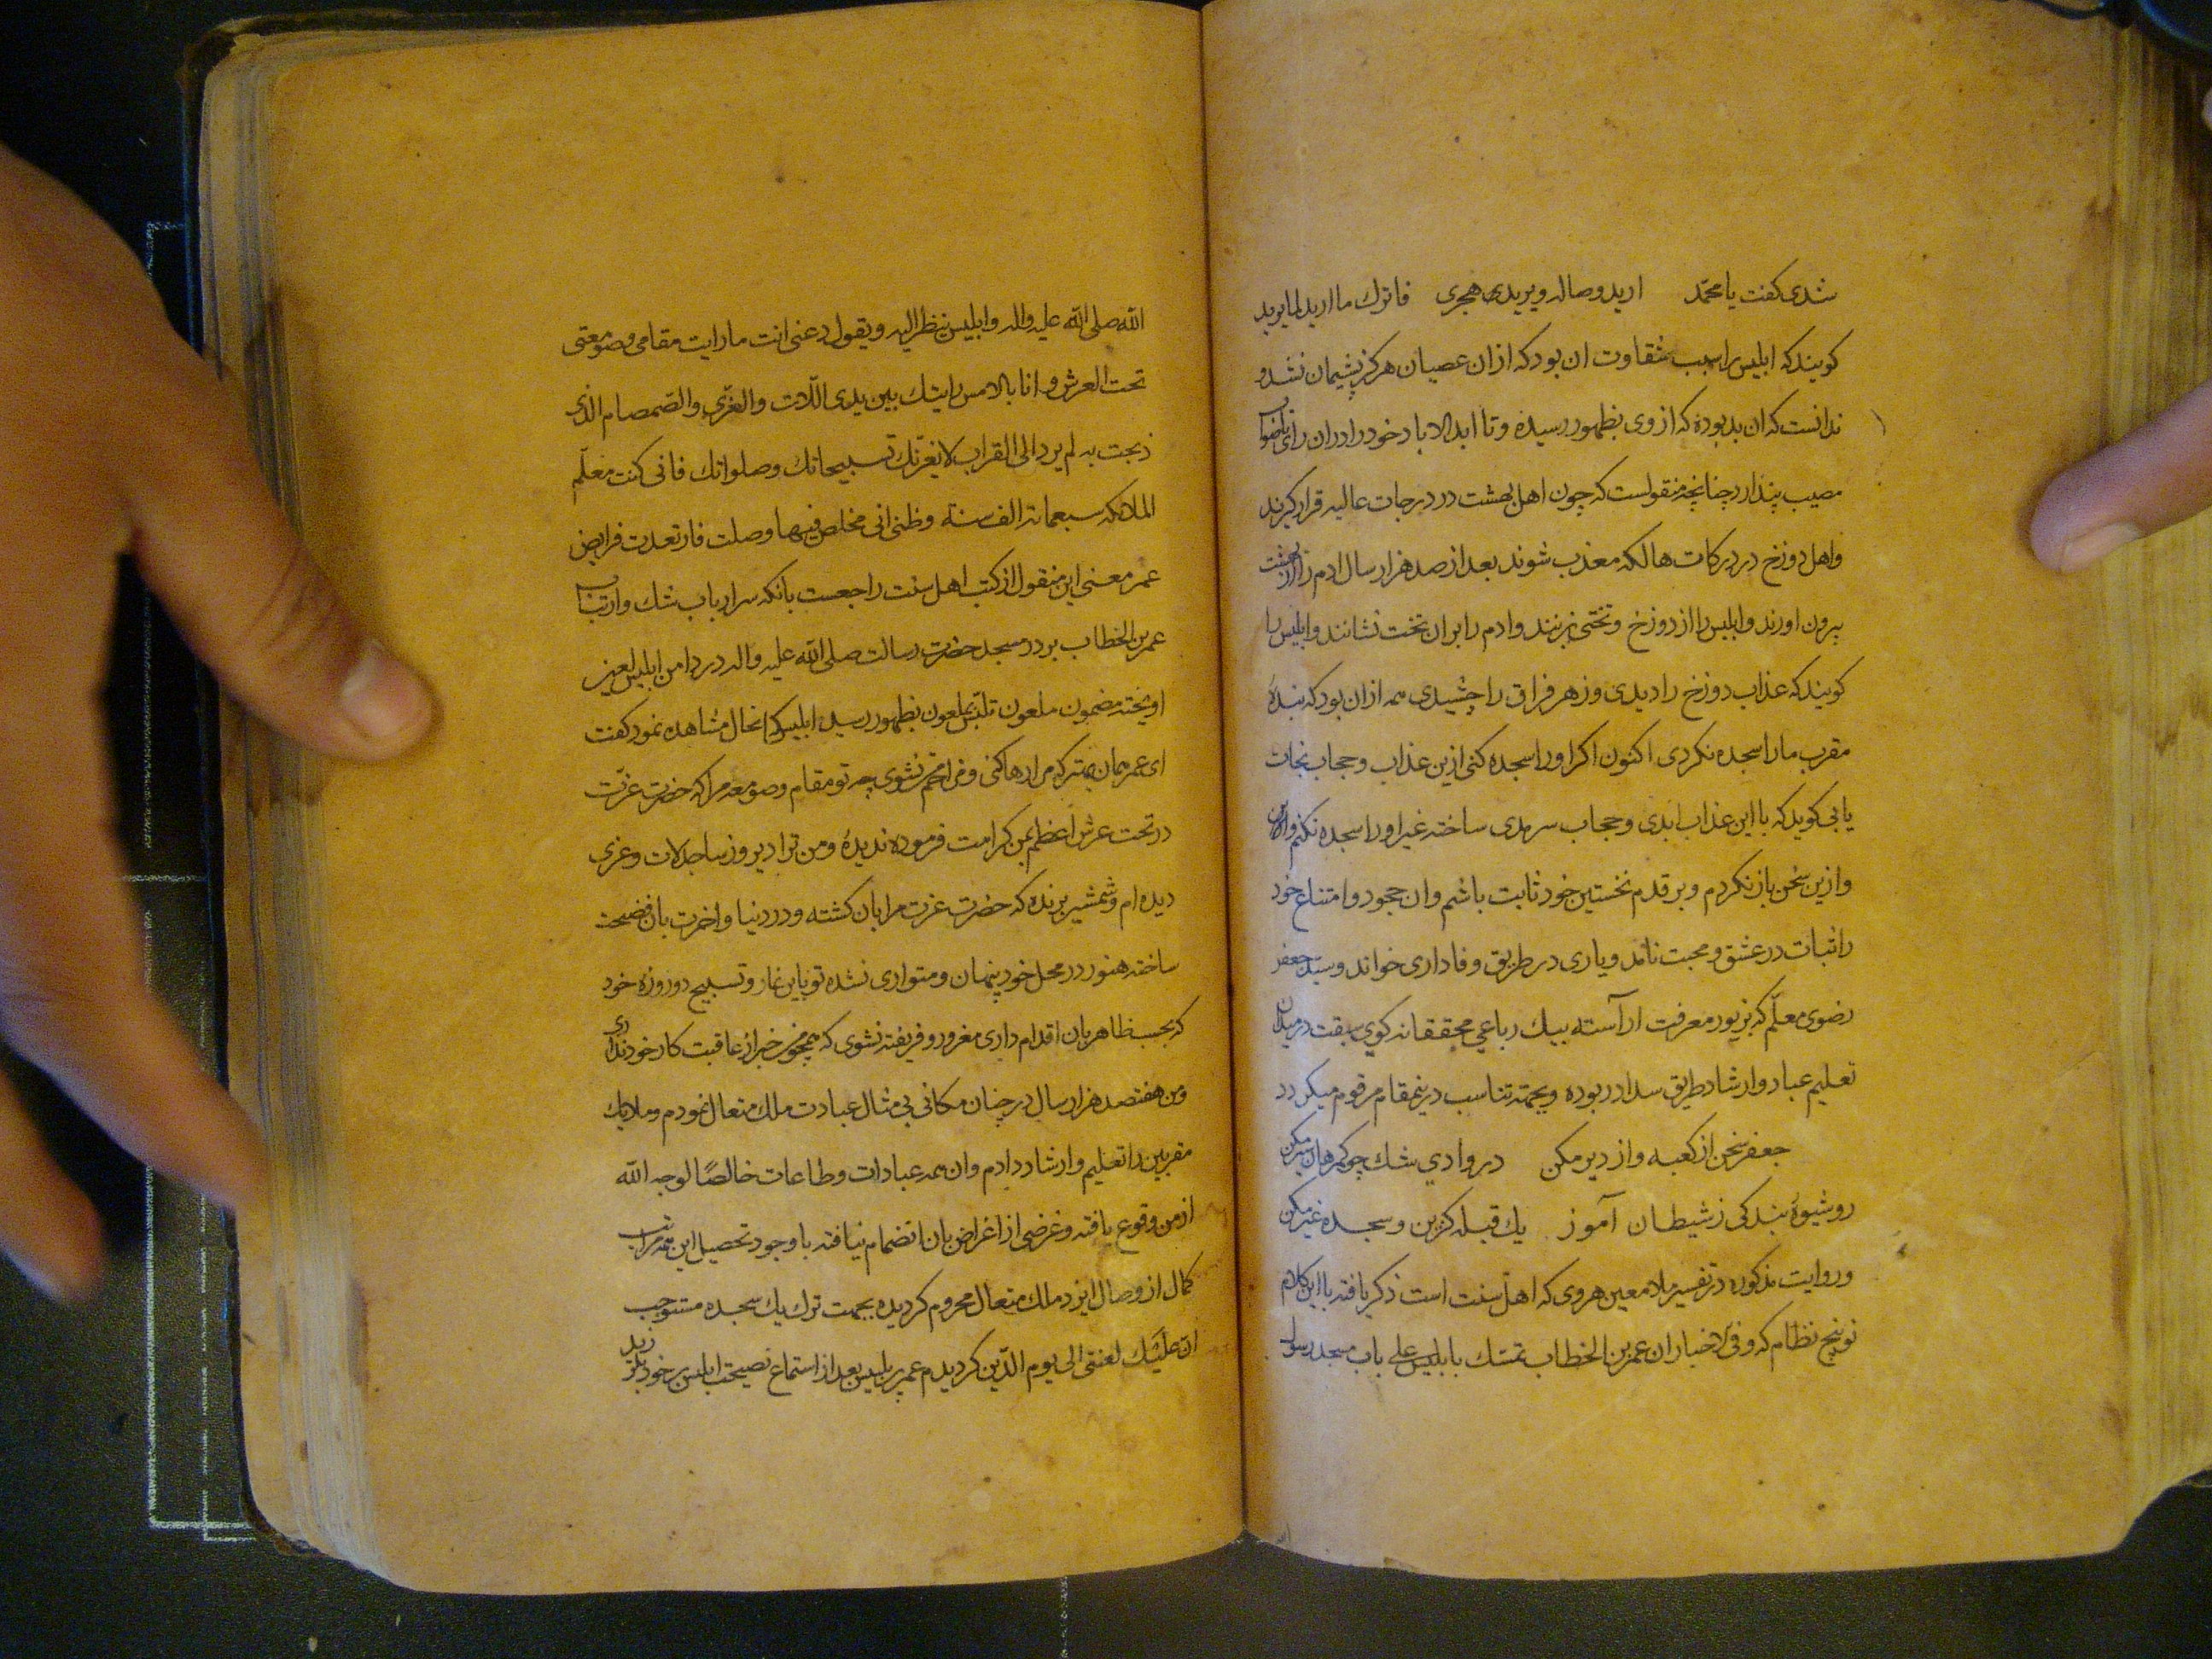 شدی کفت یا محمّد اریدوصاله ویریدی هجری فاترك ما ارید لما یرید
کویند که ابلیس را سبب شقاوت ان بود که ازان عصیان هرکز پشیمان نشد و
ندانست که ان بد بوده که ازوی بظهور رسیده وتا ابد الاباد خود را دران رای
مصیب پندارد چنانچه منقولست که چون اهل بهشت در درجات عالیه قرار کیرند
واهل دوزخ در درکات هالکه معذب شوند بعد از صد هزار سال ادم را از بهشت
بیرون اورند وابلیس را از دوزخ وتختی بزنند وادم را بران تخت نشانند وابلیس را
کویند که عذاب دوزخ را دیدی وزهر فراق را چشیدی همه ازان بود که بندهٔ
مقرب ما را سجده نکردی اکنون اکر اورا سجده کنی ازین عذاب وحجاب نجات
یابی کوید که با این عذاب ابدی وحجاب سرمدی ساخته غیر اورا سجده نکنم
وازین سخن باز نکردم وبر قدم نخستین خود ثابت باشم وان حجود وامتناع خود
را ثبات در عشق ومحبت نامد ویاری در طریق وفاداری خواند وسید جعفر
رضوی معلّم که بزیور معرفت آراسته بیك رباعی محققانه کوی سبقت در میدان
تعلیم عباد وارشاد طریق سداد ربوده وبجهة تناسب درینمقام مرقوم میکردد
جعفر سخن از کعبه واز دیر مکن در وادی شك چو کمرهان سیر مکن
رو شیوهٔ بندکی ز شیطان آموز یك قبله کزین وسجده غیر مکن
وروایت مذکوره در تفسیر ملا معین هروی که اهل سنت است ذکر یافته با این کلام
توبیخ نظام که وفی الاخبار ان عمر بن الخطاب تمسّك بابلیس علی باب مسجد رسول
الله صلی الله علیه واله وابلیس ینظر الیه ویقول دعنی انت ما رایت مقامی وصومعتی
تحت العرش وانا بالامس رایتك بین یدی اللّات والعزّی والصّمصام الذی
ذبحت به لم یرد الی القراب لا یغرّنك تسبیحاتك وصلواتك فانی کنت معلّم
الملائکه سبعمائه الف سنه وظنی انی مخلص فیها وصلت فارتعدت فرایص
عمر معنی این منقول از کتب اهل سنت راجعست بانکه سر ارباب شك وارتیاب
عمر بن الخطاب بر در مسجد حضرت رسالت صلی الله علیه واله در دامن ابلیس لعین
اویخته مضمون ملعون تلبّس بملعون بظهور رسید ابلیس که انحال مشاهده نمود کفت
ای عمر همان بهتر که مرا رها کنی ومزاحم نشوی چه تو مقام وصومعه مرا که حضرت عزّت
در تحت عرش اعظم بمن کرامت فرموده ندیدهٔ ومن ترا دیروز ساجد لات وعزی
دیده ام وشمشیر برنده که حضرت عزت مرا بان کشته ودر دنیا واخرت بان فضیحت
ساخته هنوز در محل خود پنهان ومتواری نشده تو باین نماز وتسبیح دوروزهٔ خود
که بحسب ظاهر بان اقدام داری مغرور وفریفته نشوی که همچو من خبر از عاقبت کار خود نداری
ومن هفتصد هزار سال در چنان مکانی بی مثال عبادت ملك متعال نمودم وملایك
مقربین را تعلیم وارشاد دادم وان همه عبادات وطاعات خالصًا لوجه الله
از من وقوع یافته وغرضی از اغراض بان انضمام نیافته با وجود تحصیل این همه مراتب
کمال از وصال ایزد ملك متعال محروم کردیده بجهت ترك یك سجده مستوجب
انّ علیك لعنتی الی یوم الدّین کردیدم عمر پر تلبیس بعد از استماع نصیحت ابلیس بر خود بلرزید